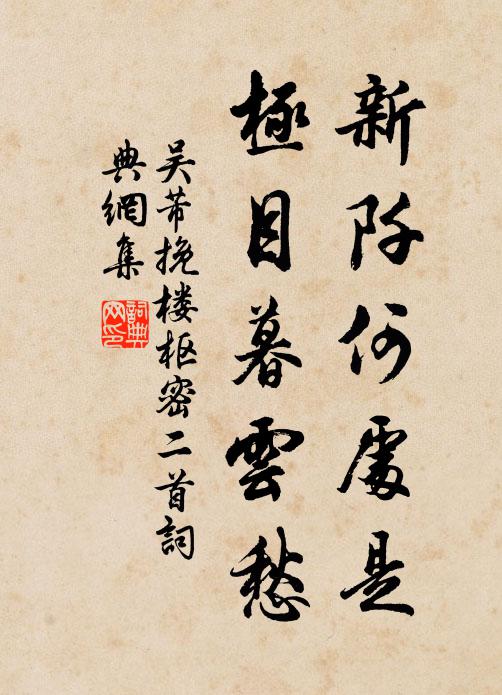 新阡何處是
極目暮雲愁
吴芾挽楼枢密二首詞
典網集
詞典
网印